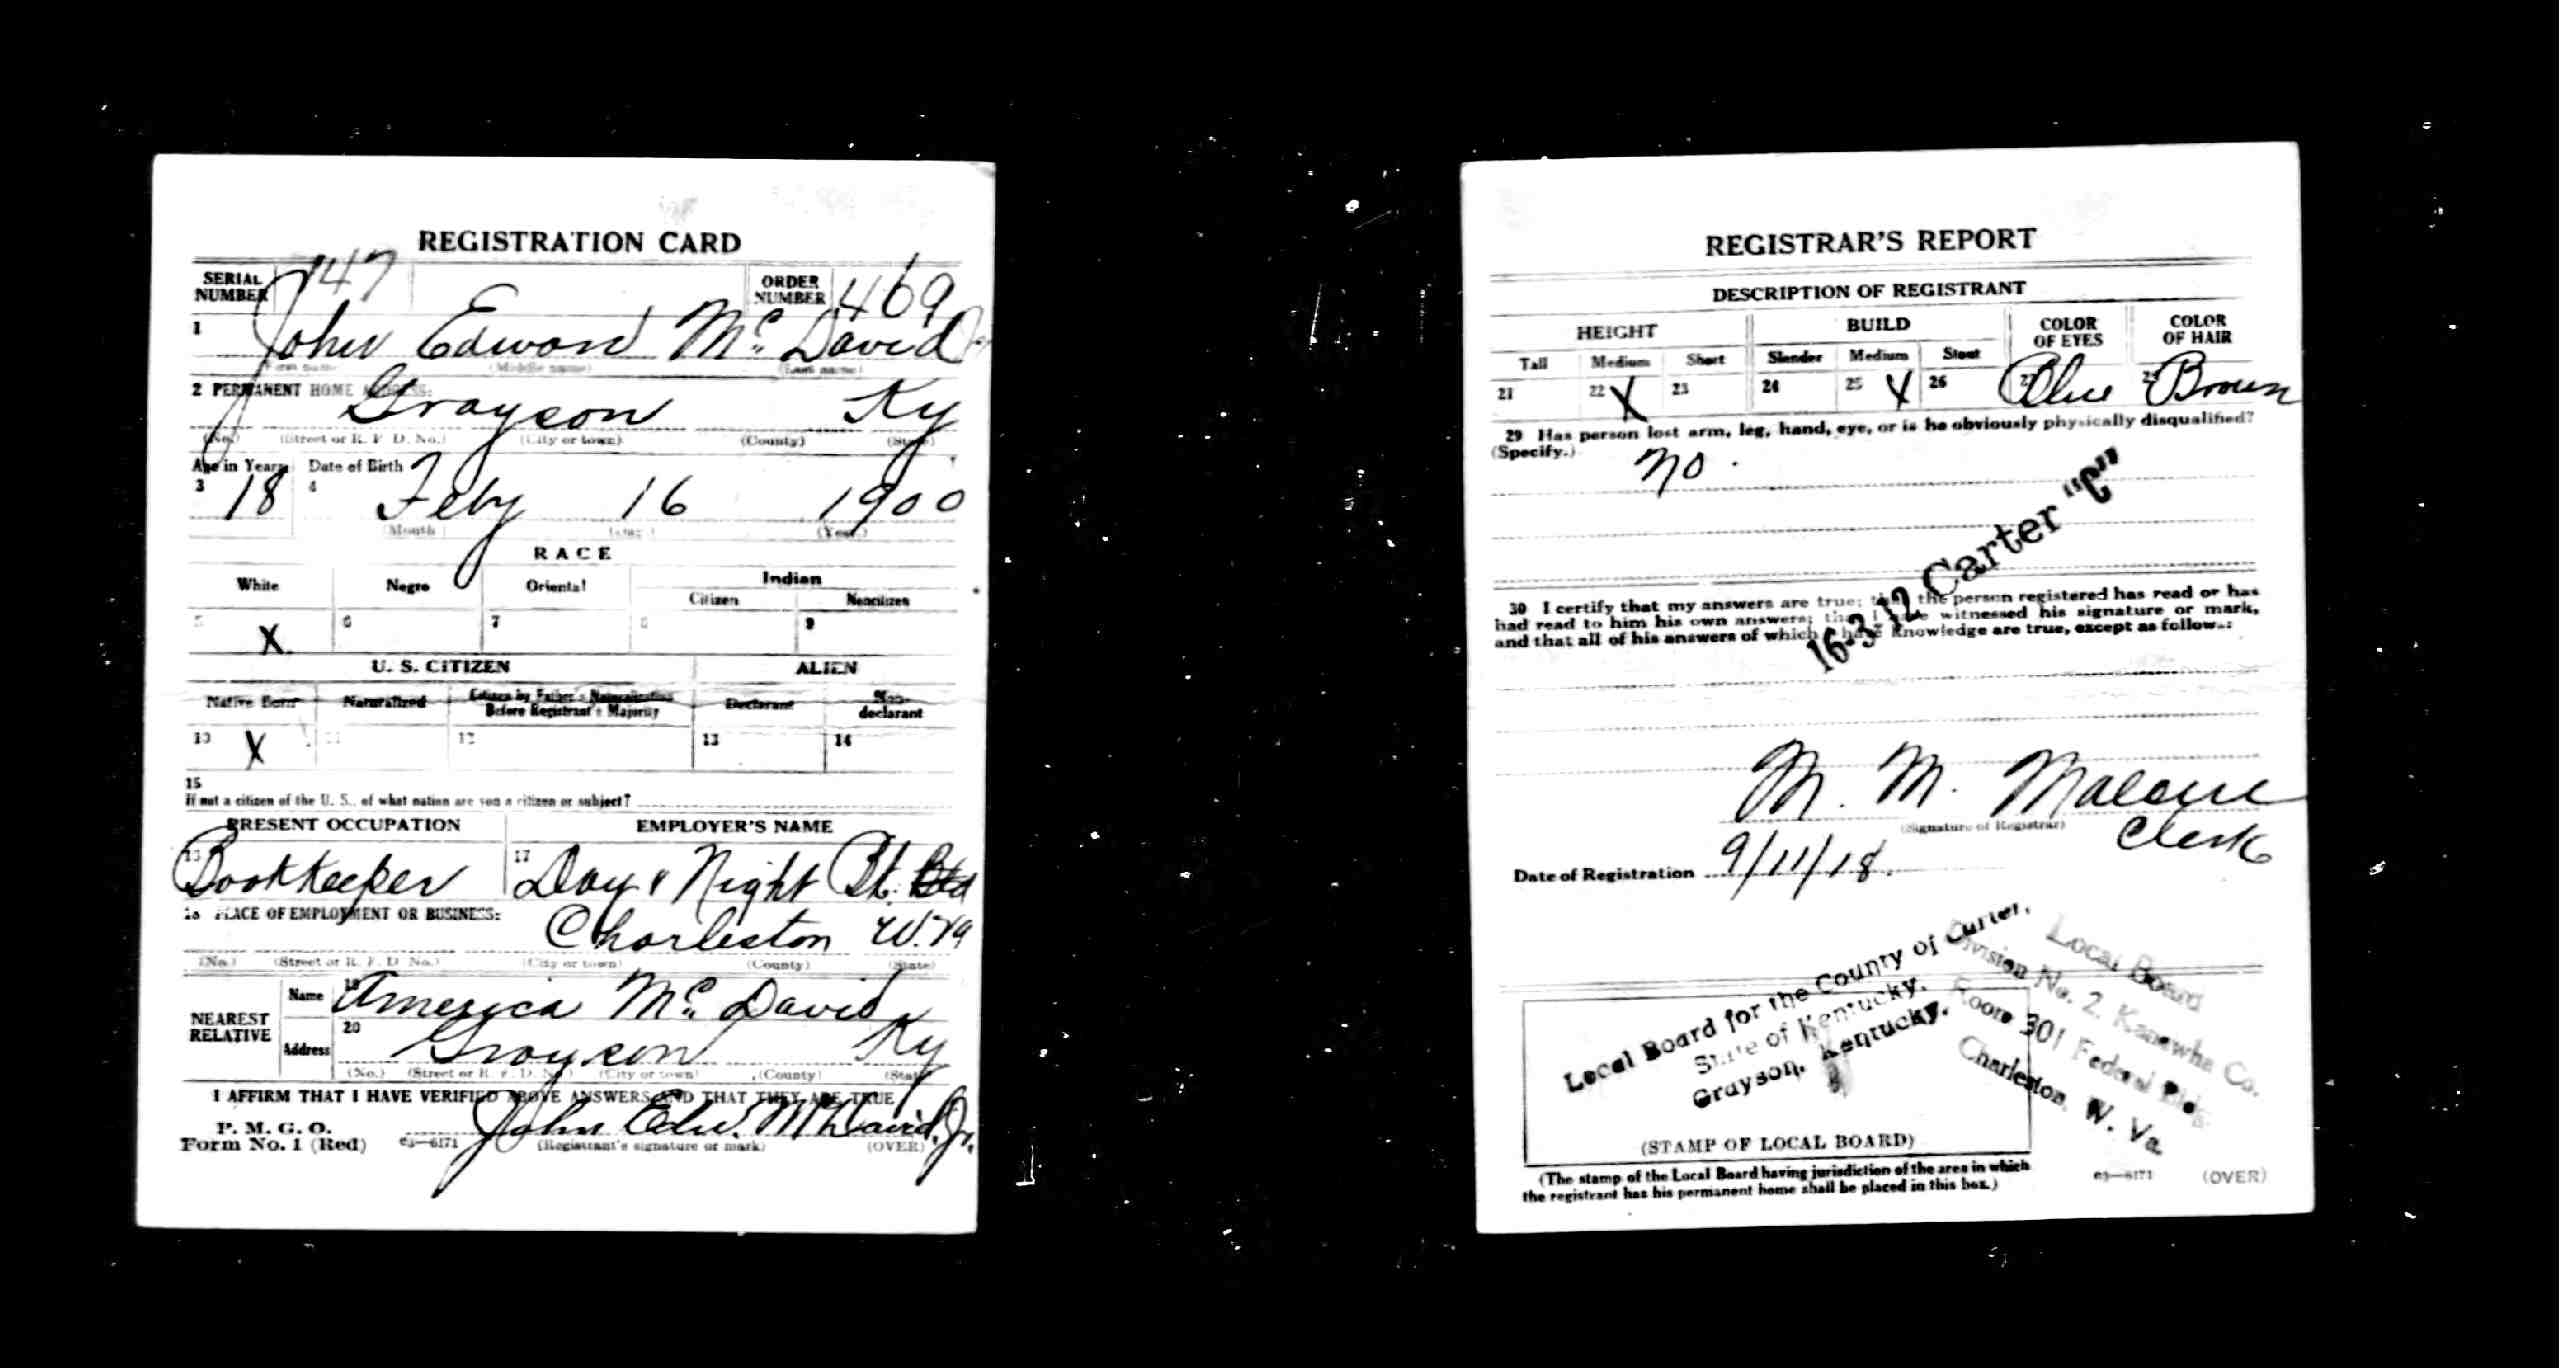 REGISTRATION CARD
SERIAL NUMBER 747 ORDER NUMBER 469
1 John Edward Mc David
(First name) (Middle name) (Last name)
2 PERMANENT HOME ADDRESS:
Grayson Ky
(No.) (Street or R. F. D. No.) (City or town) (County) (State)
Age in Years Date of Birth
3 18 4 Feby 16 1900
(Month) (Day.) (Year.)
RACE
White Negro Oriental Indian
Citizen Noncitizen
5 X 6 7 8 9
U. S. CITIZEN ALIEN
Native Born Naturalized Citizen by Father's Naturalization Before Registrant's Majority Declarant Non-declarant
10 X 11 12 13 14
15
If not a citizen of the U. S., of what nation are you a citizen or subject?
PRESENT OCCUPATION EMPLOYER'S NAME
16 Bookkeeper 17 Day & Night
18 PLACE OF EMPLOYMENT OR BUSINESS:
Charleston W. Va
(No.) (Street or R. F. D. No.) (City or town) (County) (State)
NEAREST RELATIVE
Name 19 America Mc David
Address 20 Grayson Ky
(No.) (Street or R. F. D. No.) (City or town) (County) (State)
I AFFIRM THAT I HAVE VERIFIED ABOVE ANSWERS AND THAT THEY ARE TRUE
P. M. G. O.
Form No. 1 (Red) 03—6171 John Edw. McDavid, Jr.
(Registrant's signature or mark) (OVER)
REGISTRAR'S REPORT
DESCRIPTION OF REGISTRANT
HEIGHT BUILD COLOR OF EYES COLOR OF HAIR
Tall Medium Short Slender Medium Stout
21 22 X 23 24 25 X 26 27 Blue 28 Brown
29 Has person lost arm, leg, hand, eye, or is he obviously physically disqualified?
(Specify.) no.
16-3-12 Carter "C"
30 I certify that my answers are true; that the person registered has read or has
had read to him his own answers; that I have witnessed his signature or mark,
and that all of his answers of which I have knowledge are true, except as follows:
M. M. Malone
(Signature of Registrar) Clerk
Date of Registration 9/11/18.
Local Board for the County of Carter,
State of Kentucky,
Grayson, Kentucky.
Local Board
Division No. 2, Kanawha Co.
Room 301 Federal Bldg.
Charleston, W. Va.
(STAMP OF LOCAL BOARD)
(The stamp of the Local Board having jurisdiction of the area in which
the registrant has his permanent home shall be placed in this box.)
03—6171 (OVER)